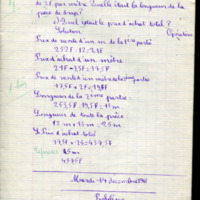 de 2F par mètre. Quelle était la longueur de la
pièce de drap?
2) Quel était le prix d'achat total?
Solution Opérations
Prix de vente d'un m de la 1ère partie
252F : 12 = 21F
Prix d'achat d'un mètre
21F - 3,5F = 17,5F
Prix de vente d'un mètre de la partie
17,5F + 2F = 19,5F
Longueur de la 2ème partie
253,5F : 19,5F = 13m
Longueur de toute la pièce
12m + 13m = 25m
Prix d'achat total
17,5F x 25 = 437,5F
Réponses 25m
437,5F
Mercredi 14 décembre
Problème